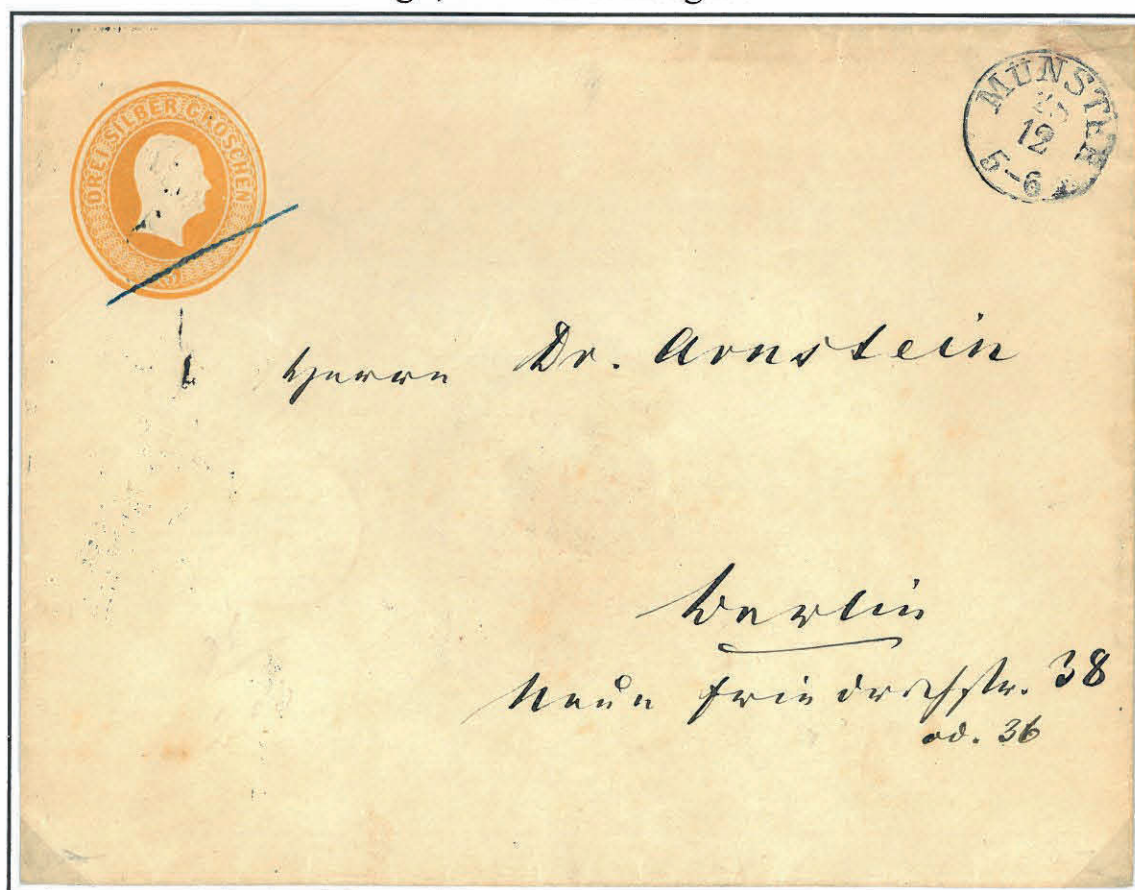 DREI SILBER GROSCHEN
MÜNSTER
12
5-6
Herrn Dr. Arnstein
Berlin
Neue Friedrichstr. 38
od. 36